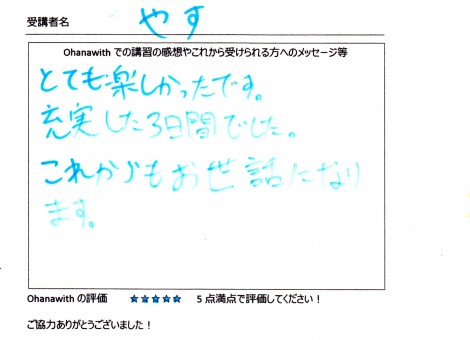 受講者名 やす
Ohanawith での講習の感想やこれから受けられる方へのメッセージ等
とても楽しかったです。
充実した3日間でした。
これからもお世話になり
ます。
Ohanawith の評価 ★★★★★ 5 点満点で評価してください！
ご協力ありがとうございました！